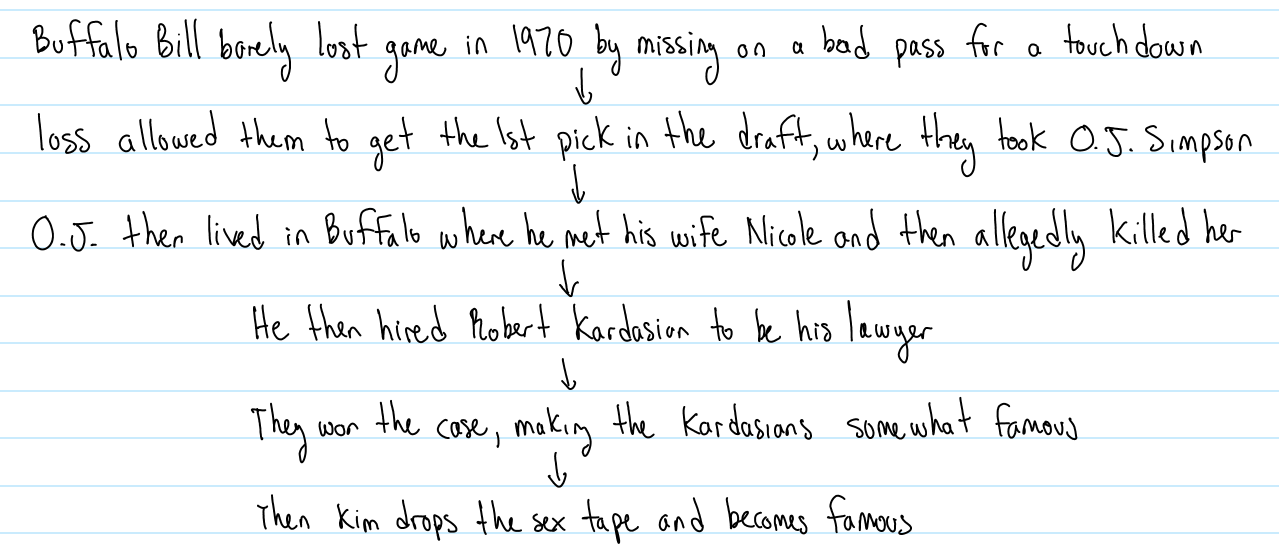 Buffalo Bill barely lost game in 1970 by missing on a bad pass for a touchdown
↓
loss allowed them to get the 1st pick in the draft, where they took O.J. Simpson
↓
O.J. then lived in Buffalo where he met his wife Nicole and then allegedly killed her
↓
He then hired Robert Kardasian to be his lawyer
↓
They won the case, making the Kardasians somewhat famous
↓
Then Kim drops the sex tape and becomes famous